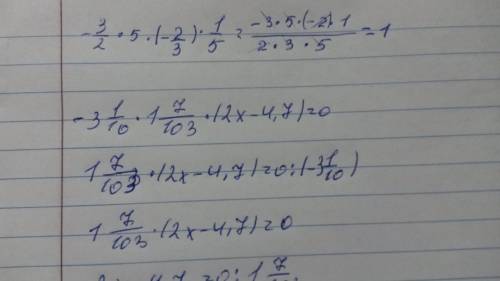 -3/2 · 5 · (-2/3) · 1/5 = -3·5·(-2)·1 / 2·3·5 = 1
-3 1/10 · 1 7/103 · (2x-4,7)=0
1 7/103 · (2x-4,7)=0:(-3 1/10)
1 7/103 · (2x-4,7)=0